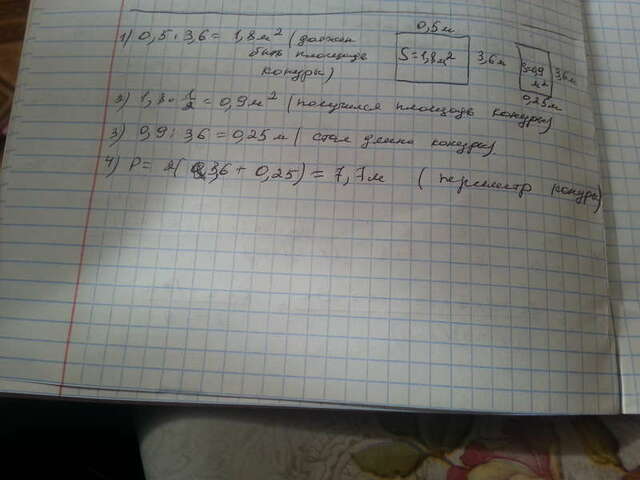 1) 0,5 · 3,6 = 1,8 м² (должен
быть площадь
конуры)
0,5 м
S = 1,8 м²
3,6 м
S=0,9
м²
3,6 м
0,25 м
2) 1,8 · 1/2 = 0,9 м² (получился площадь конуры)
3) 0,9 : 3,6 = 0,25 м ( стал длина конуры)
4) P = 2( 3,6 + 0,25) = 7,7 м ( периметр конуры)